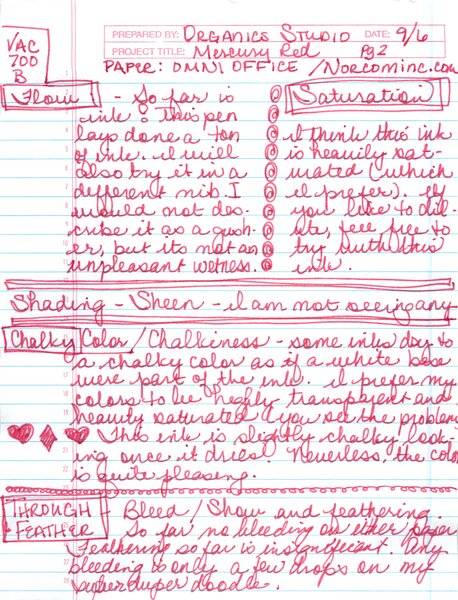 VAC
700
B
PREPARED BY: ORGANICS STUDIO DATE: 9/6
PROJECT TITLE: Mercury Red Pg 2
PAPER: OMNI OFFICE / Norcominc.com
Flow - So far is
ink & this pen
lays done a ton
of ink. I will
also try it in a
different nib. I
would not des-
cribe it as a gush-
er, but its not an
unpleasant wetness.
Saturation
I think this ink
is heavily sat-
urated (which
I prefer). If
you like to dil-
ute, feel free to
try with this
ink.
Shading - Sheen - I am not seeing any
Chalky Color / Chalkiness - some inks dry to
a chalky color as if a white base
were part of the ink. I prefer my
colors to be highly transparent and
heavily saturated (you see the problem
This ink is slightly chalky look-
ing once it dries. Neverless, the color
is quite pleasing.
THROUGH
FEATHER
- Bleed / Show and feathering.
So far, no bleeding on either paper
Feathering so far is insignificant. Any
bleeding is only a few drops on my
super duper doodle.